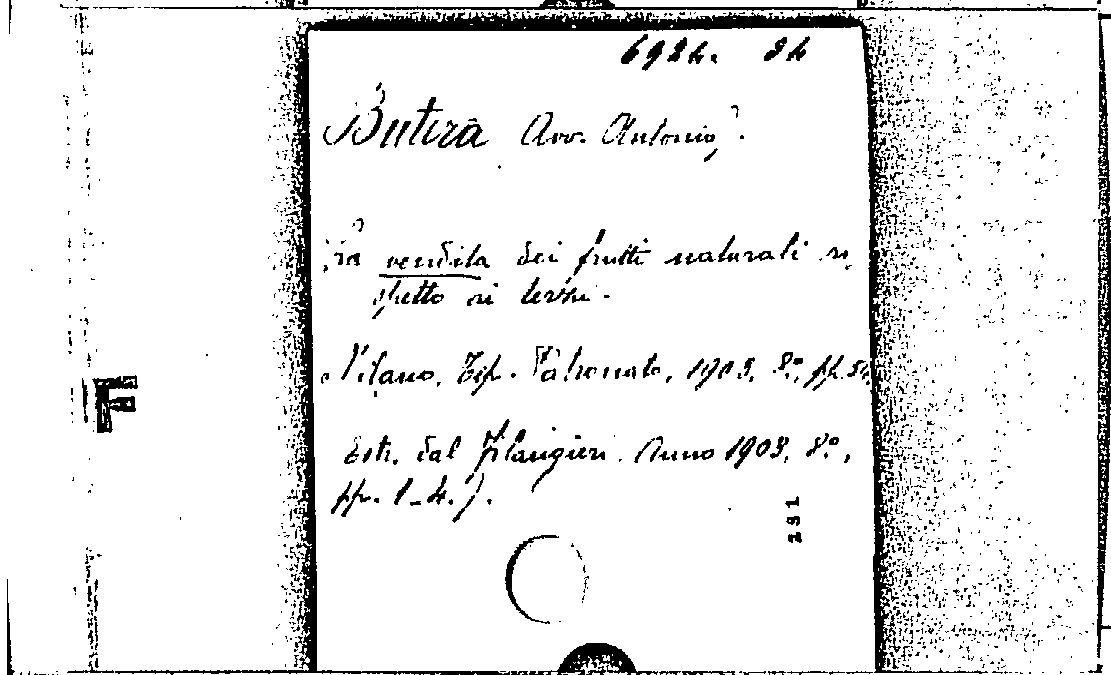 6924. 24
Butera Avv. Antonio,
La vendita dei frutti naturali ri
spetto ai terzi.
Milano, Tip. Patronato, 1903, 8°, pp.
Estr. dal Filangieri. Anno 1903, 8°,
pp. 1-4.).
151